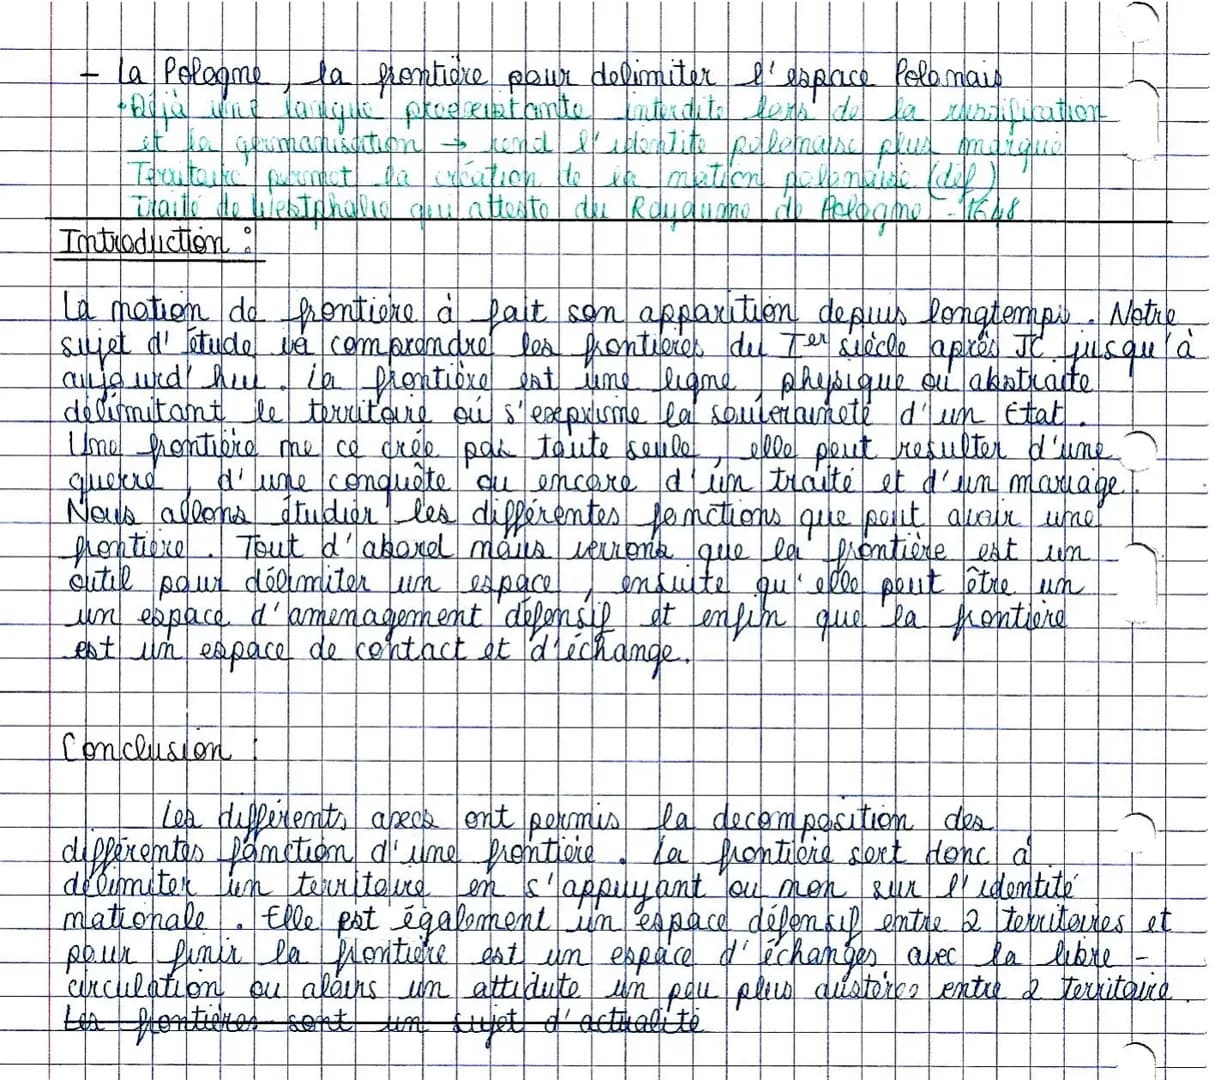 - La Pologne, la frontière pour delimiter l'espace Polonais
• Déjà une langue préexistante interdite lors de la russification
et la germanisation → rend l'identité polonaise plus marqué
Territoire permet la création de la nation polonaise (def)
Traité de Westphalie qui atteste du Royaume de Pologne - 1648
Introduction :
La notion de frontière à fait son apparition depuis longtemps. Notre
sujet d'étude va comprendre les frontières du Ier siècle après JC jusqu'à
aujourd'hui. La frontière est une ligne physique ou abstraite
délimitant le territoire ou s'exprime la souveraineté d'un État.
Une frontière ne ce crée pas toute seule, elle peut resulter d'une
guerre, d'une conquête ou encore d'un traité et d'un mariage.
Nous allons étudier les différentes fonctions que peut avoir une
frontière. Tout d'abord nous verrons que la frontière est un
outil pour délimiter un espace, ensuite qu'elle peut être un
un espace d'amenagement défensif et enfin que la frontière
est un espace de contact et d'échange.
Conclusion :
Les différents axes ont permis la decomposition des
différentes fonction d'une frontière. La frontière sert donc à
délimiter un territoire en s'appuyant ou non sur l'identité
nationale. Elle est également un espace défensif entre 2 territoires et
pour finir la frontière est un espace d'échanges avec la libre-
circulation ou alors un attidute un peu plus austères entre 2 territoire.
Les frontières sont un sujet d'actualité